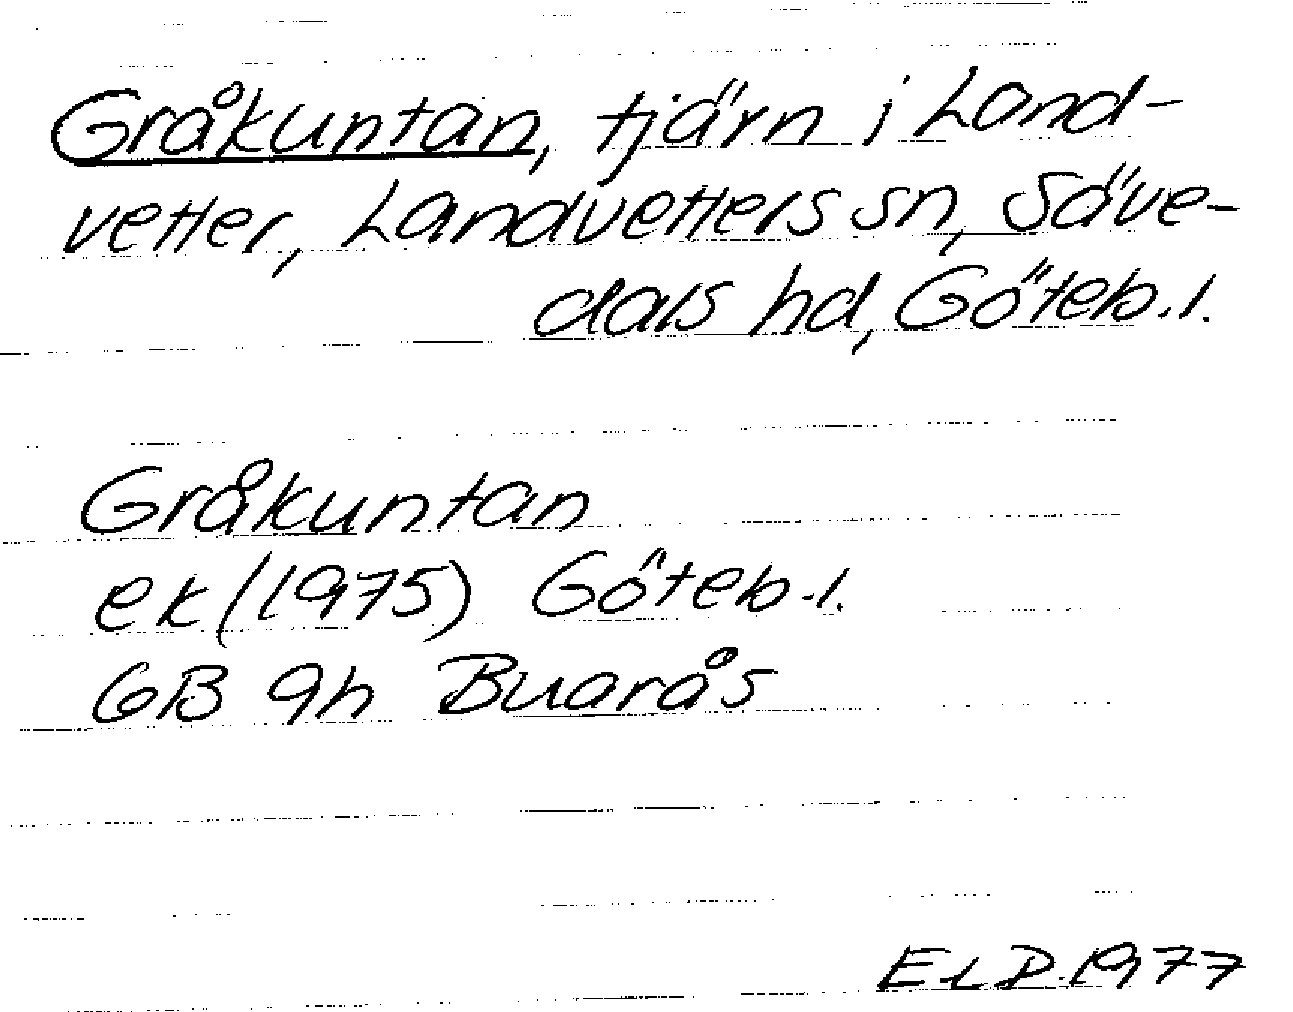 Gråkuntan, tjärn i Land-
vetter, Landvetters sn, Säve-
dals hd, Göteb.l.
Gråkuntan
ek (1975) Göteb.l.
6B 9h Buarås
ELD.1977